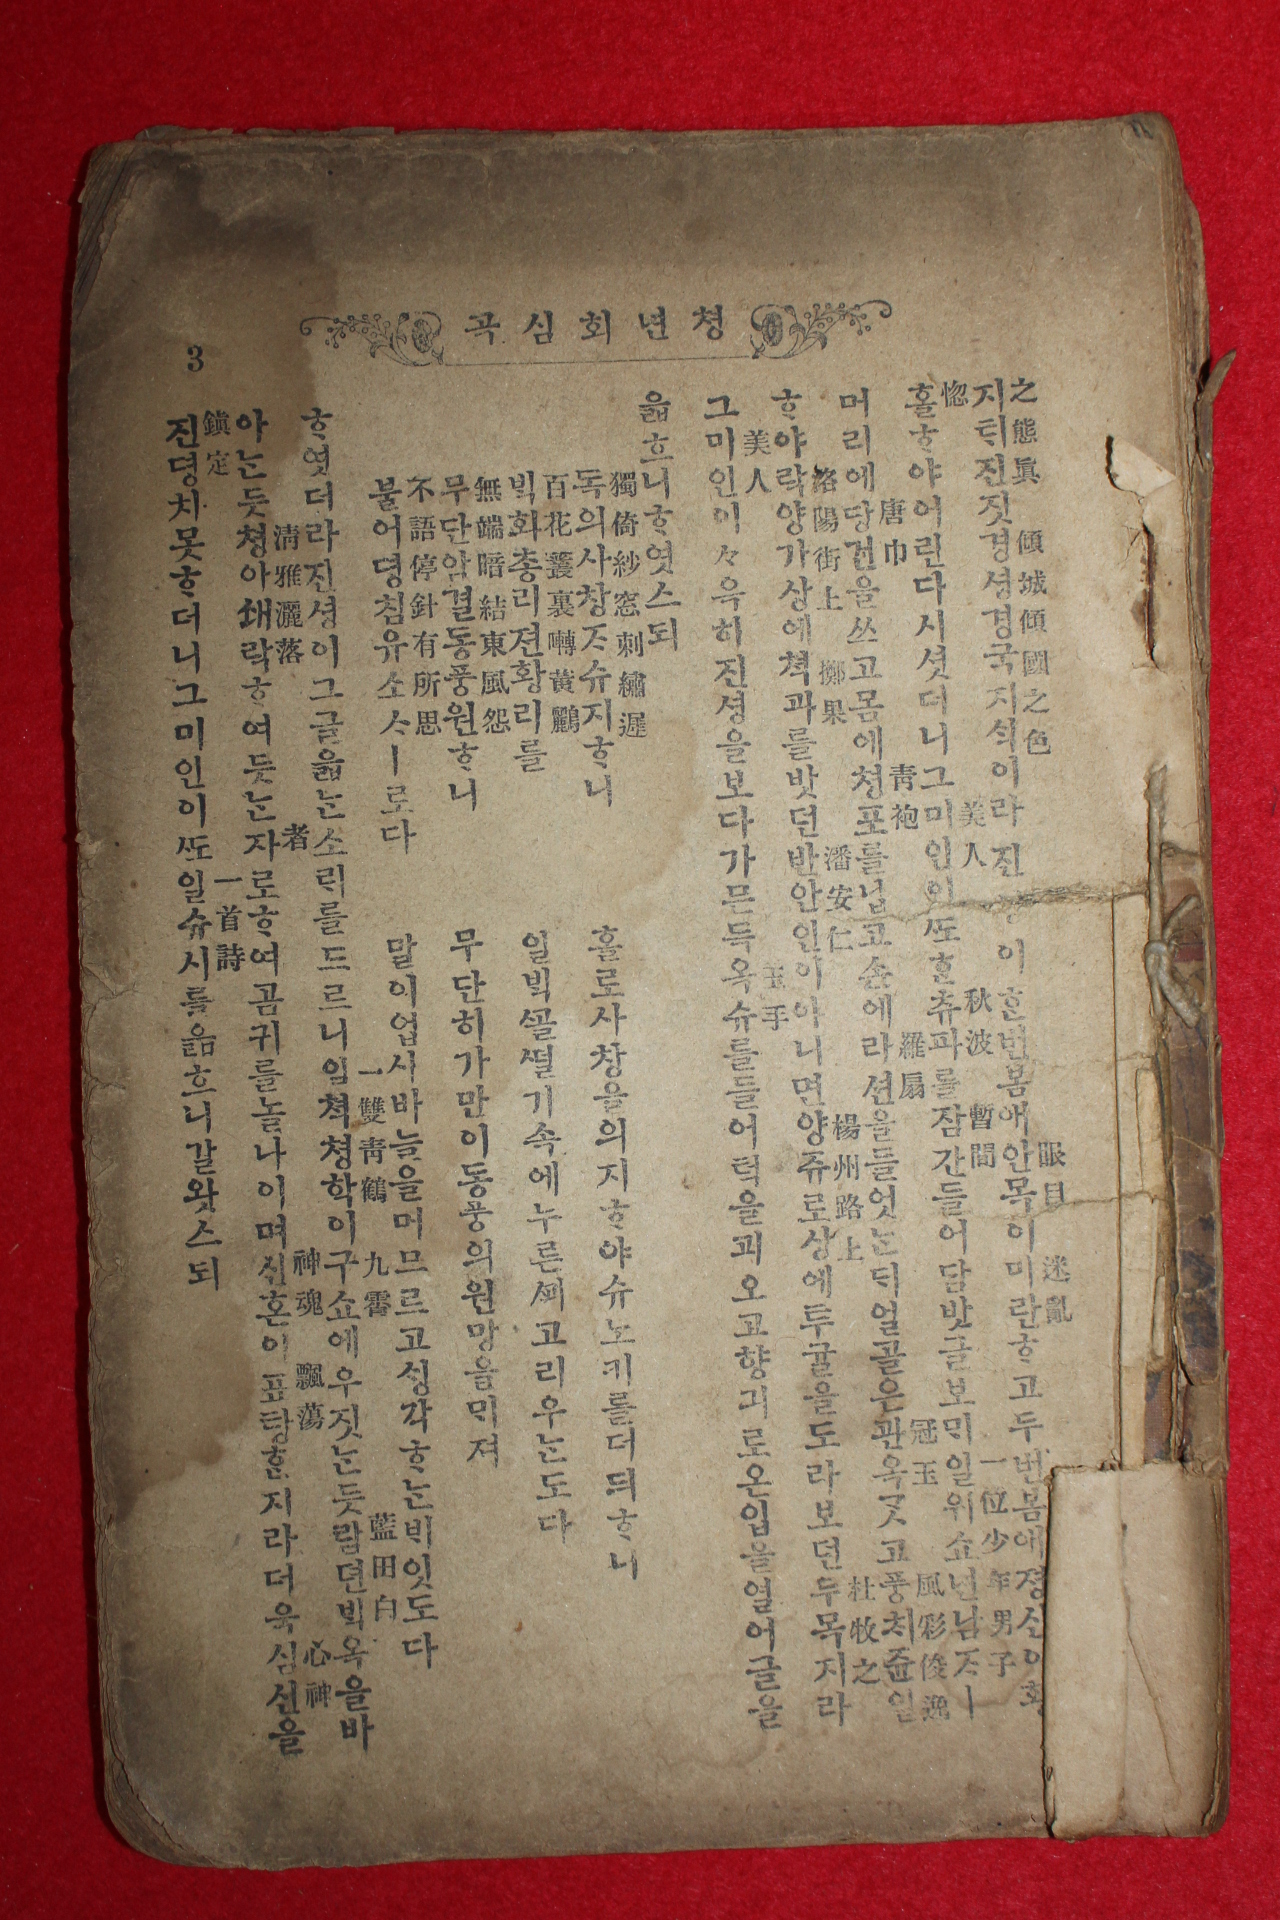 청년회심곡
之態眞 傾城傾國之色 眼目 迷亂
지ᄐᆡ진짓경셩경국지ᄉᆡᆨ이라진ᄉᆡᆼ이ᄒᆞᆫ번봄애안목이미란ᄒᆞ고두번봄에졍신이화
惚 美人 秋波 暫間 一位少年男子
홀ᄒᆞ야어린다시셧더니그미인이ᄯᅩᄒᆞᆫ츄파를잠간들어담밧글보ᄆᆡ일위쇼년남ᄌᆞㅣ
唐巾 靑袍 羅扇 冠玉 風彩俊逸
머리에당건을쓰고몸에쳥포를닙고손에라션을들엇ᄂᆞᆫᄃᆡ얼골은관옥ᄀᆞᆺ고풍ᄎᆡ쥰일
洛陽街上 擲果 潘安仁 楊州路上 杜牧之
ᄒᆞ야락양가상에쳑과를밧던반안인이아니면양쥬로샹에투귤을도라보던두목지라
美人 玉手
그미인이々윽히진셩을보다가믄득옥슈를들어턱을괴오고향긔로온입을열어글을
읇흐니ᄒᆞ엿스되
獨倚紗窓刺繡遲
독의사창ᄌᆞ슈지ᄒᆞ니 홀로사창을의지ᄒᆞ야슈노키를더듸ᄒᆞ니
百花叢裏囀黃鸝
ᄇᆡᆨ화총리젼황리를 일ᄇᆡᆨᄭᅩᆯᄯᅥᆯ기속에누른ᄭᅬ고리우ᄂᆞᆫ도다
無端暗結東風怨
무단암결동풍원ᄒᆞ니 무단히가만이동풍의원망을ᄆᆡ져
不語停針有所思
불어뎡침유소ᄉᆞㅣ로다 말이업시바늘을머므르고ᄉᆡᆼ각ᄒᆞᄂᆞᆫᄇᆡ잇도다
一雙靑鶴 九霄 藍田白
ᄒᆞ엿더라진셩이그글읇ᄂᆞᆫ소ᄅᆡ를드르니일쳑쳥학이구쇼에우짓ᄂᆞᆫ듯람뎐ᄇᆡᆨ옥을바
淸雅灑落 者 神魂 飄蕩 心神
아ᄂᆞᆫ듯쳥아쇄락ᄒᆞ여듯ᄂᆞᆫ자로ᄒᆞ여곰귀를놀나이며신혼이표탕ᄒᆞᆫ지라더욱심신을
鎭定 一首詩
진뎡치못ᄒᆞ더니그미인이ᄯᅩ일슈시를읇흐니갈왓스되
3